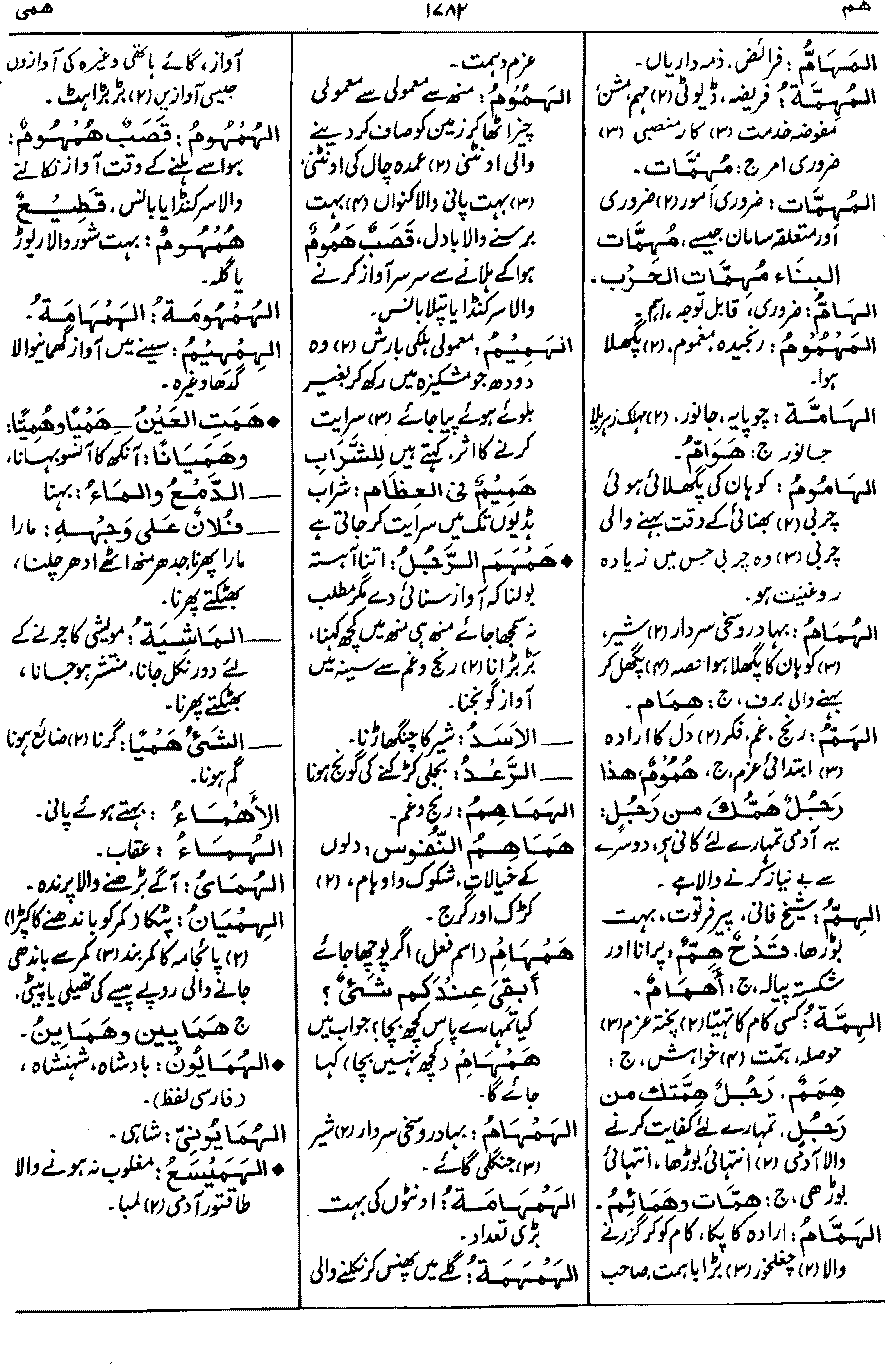 هم
۱۷۸۲
همی
المَهَامُّ: فرائض، ذمہ داریاں۔
المُهِمَّةُ: فریضہ، ڈیوٹی (۲) مہم، مشن،
مفوضہ خدمت (۳) کار منصبی (۴)
ضروری امر ج: مُهِمَّات۔
المُهِمَّات: ضروری اُمور (۲) ضروری
اور متعلقہ سامان جیسے، مُهِمَّات
البِنَاء مُهِمَّات الحَرْب۔
الهَامُّ: ضروری، قابل توجہ، اہم۔
المَهْمُومُ: رنجیدہ، مغموم، (۲) پگھلا
ہوا۔
الهَامَّة: چوپایہ، جانور، (۲) مہلک زہریلا
جانور ج: هَوَامُّ۔
الهَامُومُ: کوہان کی پگھلائی ہوئی
چربی (۲) بھنائی کے وقت بہنے والی
چربی (۳) وہ چربی جس میں زیادہ
روغنیت ہو۔
الهُمَامُ: بہادر و سخی سردار (۲) شیر،
(۳) کوہان کا پگھلا ہوا حصہ (۴) پگھل کر
بہنے والی برف، ج: هِمَام۔
الهَمُّ: رنج، غم، فکر (۲) دل کا ارادہ
(۳) ابتدائی عزم، ج، هُمُومٌ هذا
رَجُلٌ هَمُّكَ من رَجُلٍ:
یہ آدمی تمہارے لئے کافی ہے، دوسرے
سے بے نیاز کرنے والا ہے۔
الهِمُّ: شیخ فانی، پیر فرتوت، بہت
بوڑھا، قَدْحٌ هِمٌّ: پرانا اور
شکستہ پیالہ، ج: أَهْمَامٌ۔
الهِمَّةُ: کسی کام کا تہیّا (۲) پختہ عزم (۳)
حوصلہ، ہمّت (۴) خواہش، ج:
هِمَمٌ، رَجُلٌ هِمَّتك من
رَجُلٍ، تمہارے لئے کفایت کرنے
والا آدمی (۲) انتہائی بوڑھا، انتہائی
بوڑھی، ج: هِمَّات وهَمَائِمُ۔
الهَمَّامُ: ارادہ کا پکا، کام کو کر گزرنے
والا (۲) چغلخور (۳) بڑا باہمت، صاحب
عزم و ہمت۔
الهَمُومُ: منھ سے معمولی سے معمولی
چیز اٹھا کر زمین کو صاف کر دینے
والی اونٹنی (۲) عمدہ چال کی اونٹنی،
(۳) بہت پانی والا کنواں (۴) بہت
برسنے والا بادل، قَصَبٌ هَمُومٌ
ہوا کے ہلانے سے سرسر آواز کرنے
والا سرکنڈا یا پتلا بانس۔
الهَمِيمُ: معمولی ہلکی بارش (۲) وہ
دودھ جو مشکیزہ میں رکھ کر بغیر
بلوئے ہوئے پیا جائے (۳) سرایت
کرنے کا اثر، کہتے ہیں لِلشَّرَابِ
هَمِيمٌ فی العِظَام: شراب
ہڈیوں تک میں سرایت کر جاتی ہے
◆ هَمْهَمَ الرَّجُلُ: اتنا آہستہ
بولنا کہ آواز سنائی دے مگر مطلب
نہ سمجھا جائے منھ ہی منھ میں کچھ کہنا،
بَڑبَڑانا (۲) رنج و غم سے سینہ میں
آواز گونجنا۔
— الاَسَدُ: شیر کا چنگھاڑنا۔
— الرَّعْدُ: بجلی کڑکنے کی گونج ہونا
الهَمَاهِمُ: رنج و غم۔
هَمَاهِمُ النُّفُوس: دلوں
کے خیالات، شکوک و اوہام، (۲)
کڑک اور گرج۔
هَمْهَامِ (اسم فعل) اگر پوچھا جائے
أبَقِيَ عِنْدَكم شَیْءٌ؟
کیا تمہارے پاس کچھ بچا؟ جواب میں
هَمْهَامِ (کچھ نہیں بچا) کہا
جائے گا۔
الهَمْهَامُ: بہادر و سخی سردار (۲) شیر
(۳) جنگلی گائے۔
الهَمْهَامَةُ: اونٹوں کی بہت
بڑی تعداد۔
الهَمْهَمَةُ: گلے میں پھنس کر نکلنے والی
آواز، گائے ہاتھی وغیرہ کی آوازوں
جیسی آوازیں (۲) بڑبڑاہٹ۔
الهُمْهُومُ: قَصَبٌ هُمْهُومٌ:
ہوا سے ہلنے کے وقت آواز نکالنے
والا سرکنڈا یا بانس، قَطِيعٌ
هُمْهُومٌ: بہت شور والا ریوڑ
یا گلہ۔
الهُمْهُومَةُ: الهَمْهَامَةُ۔
الهِمْهِيمُ: سینے میں آواز گھمانیوالا
گدھا وغیرہ۔
◆ هَمَتِ العَيْنُ — هَمْيًا وهُمِيًّا:
وهَمَيَانًا: آنکھ کا آنسو بہانا،
— الدَّمْعُ والمَاءُ: بہنا
— فُلَانٌ عَلى وَجْهِهِ: مارا
مارا پھرنا، جدھر منھ اٹھے ادھر چلنا،
بھٹکتے پھرنا۔
— المَاشِيَةُ: مویشی کا چرنے کے
لئے دور نکل جانا، منتشر ہو جانا،
بھٹکتے پھرنا۔
— الشَیْءُ هَمْيًا: گرنا (۲) ضائع ہونا
گم ہونا۔
الأَهْمَاءُ: بہتے ہوئے پانی۔
الهُمَاءُ: عقاب۔
الهُمَایُ: آگے بڑھنے والا پرندہ۔
الهِمْيَانُ: پٹکا (کمر کو باندھنے کا کپڑا)
(۲) پائجامہ کا کمر بند (۳) کمر سے باندھی
جانے والی روپے پیسے کی تھیلی یا پیٹی،
ج هَمَايِين وهَمَايِنُ۔
◆ الهُمَايُونُ: بادشاہ، شہنشاہ،
(فارسی لفظ)۔
الهُمَايُونِیُّ: شاہی۔
◆ الهَمَيْسَعُ: مغلوب نہ ہونے والا
طاقتور آدمی (۲) لمبا۔